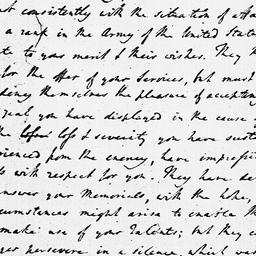 not consistently with the situation of affa
a rank in the Army of the United State
to your merit & their wishes. They
for the offer of your Services, but must
deny themselves the pleasure of accepting
zeal you have displayed in the cause
the loss & severity you have sust
rienced from the enemy, have impress
with respect for you. They have
answer your Memorials, with the hope,
cumstances might arise to enable th
make use of your Talents; but they c
persevere in a silence, which was